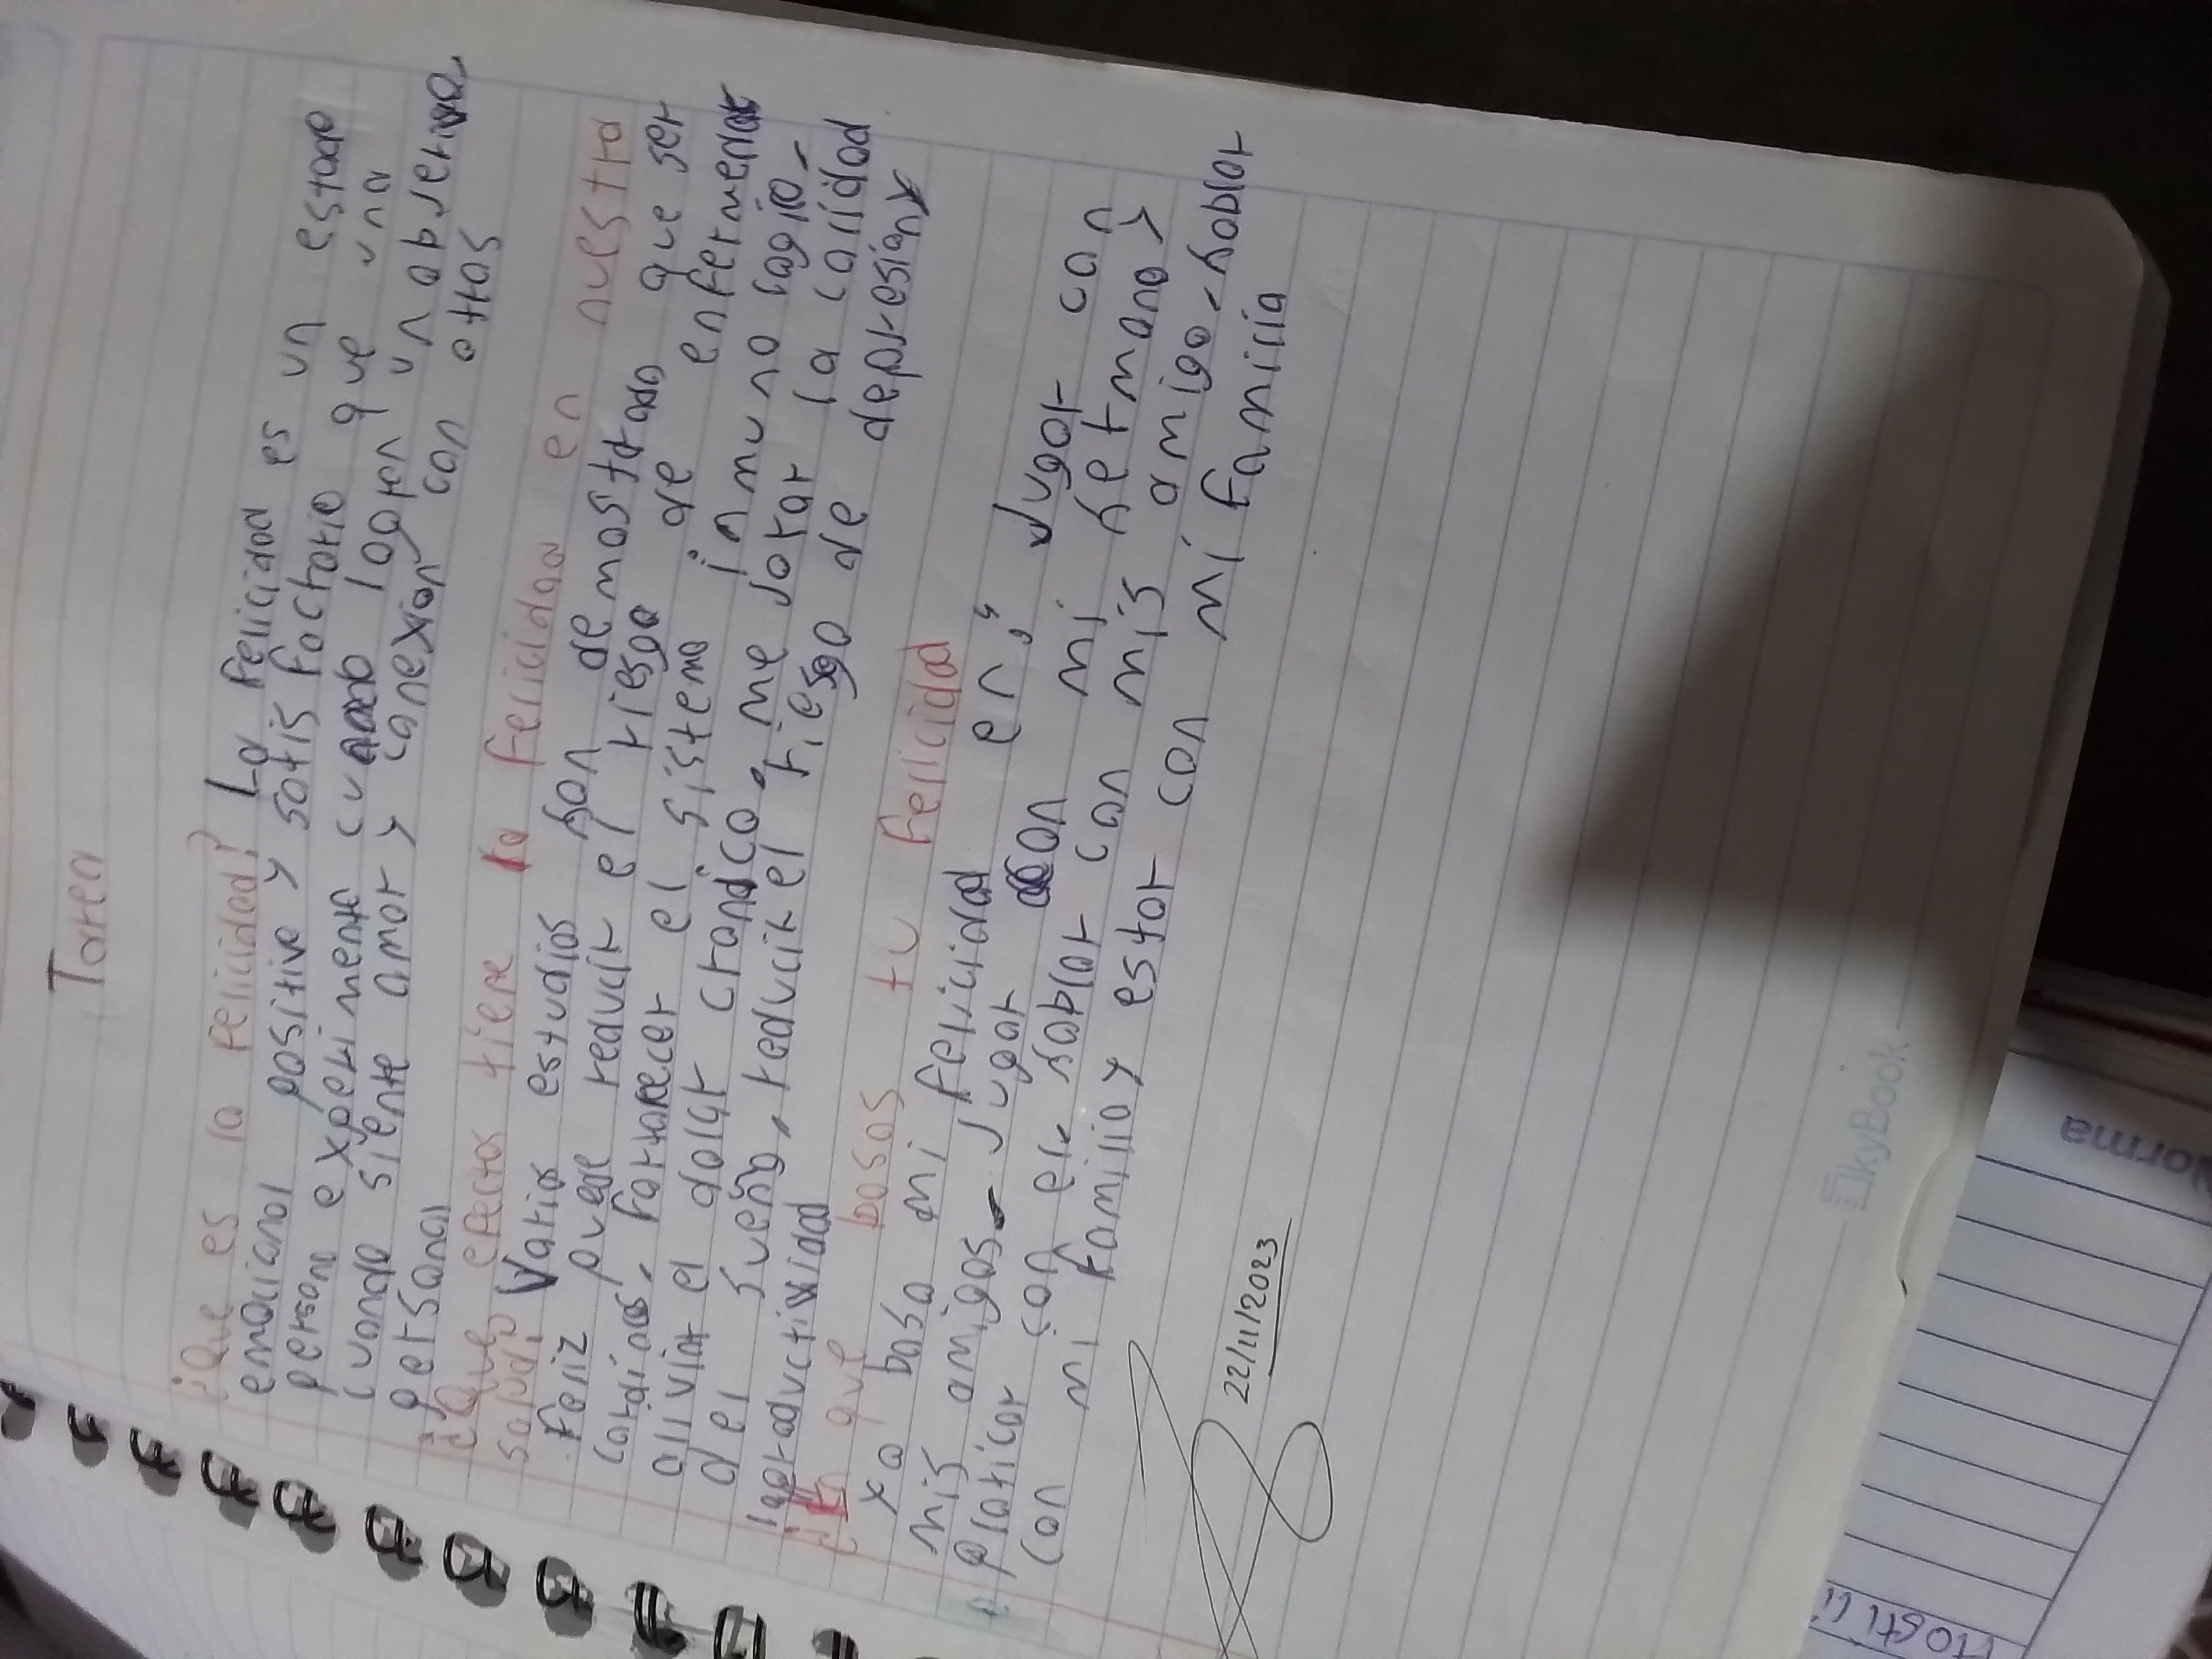 Tarea
¿Que es la Felicidad? La felicidad es un estado
emocianal positivo y satis factorio que una
persona experimenta cuando logran un observiva
cuando siente amor y conexión con otras
persanal
¿Que efectos tiene la Felicidad en nuestra
Salud? Varios estudios han demostrado que ser
Feliz puede reducir el riesgo de enfermedad
cardinas, fortarecer el sistema inmuno logio-
alliviar el dolor cronico, me jorar la caridad
del sueño, reducir el riesgo de depresión y
la productividad
¿En que basas tu Felicidad
xo baso mi felicidad en; Jugar con
mis amigos - Jugar con mi hermano y
platicor con el hablar con mis amigo - hablar
con mi familia y estar con mi familia
22/11/2023
SkyBook
Norma